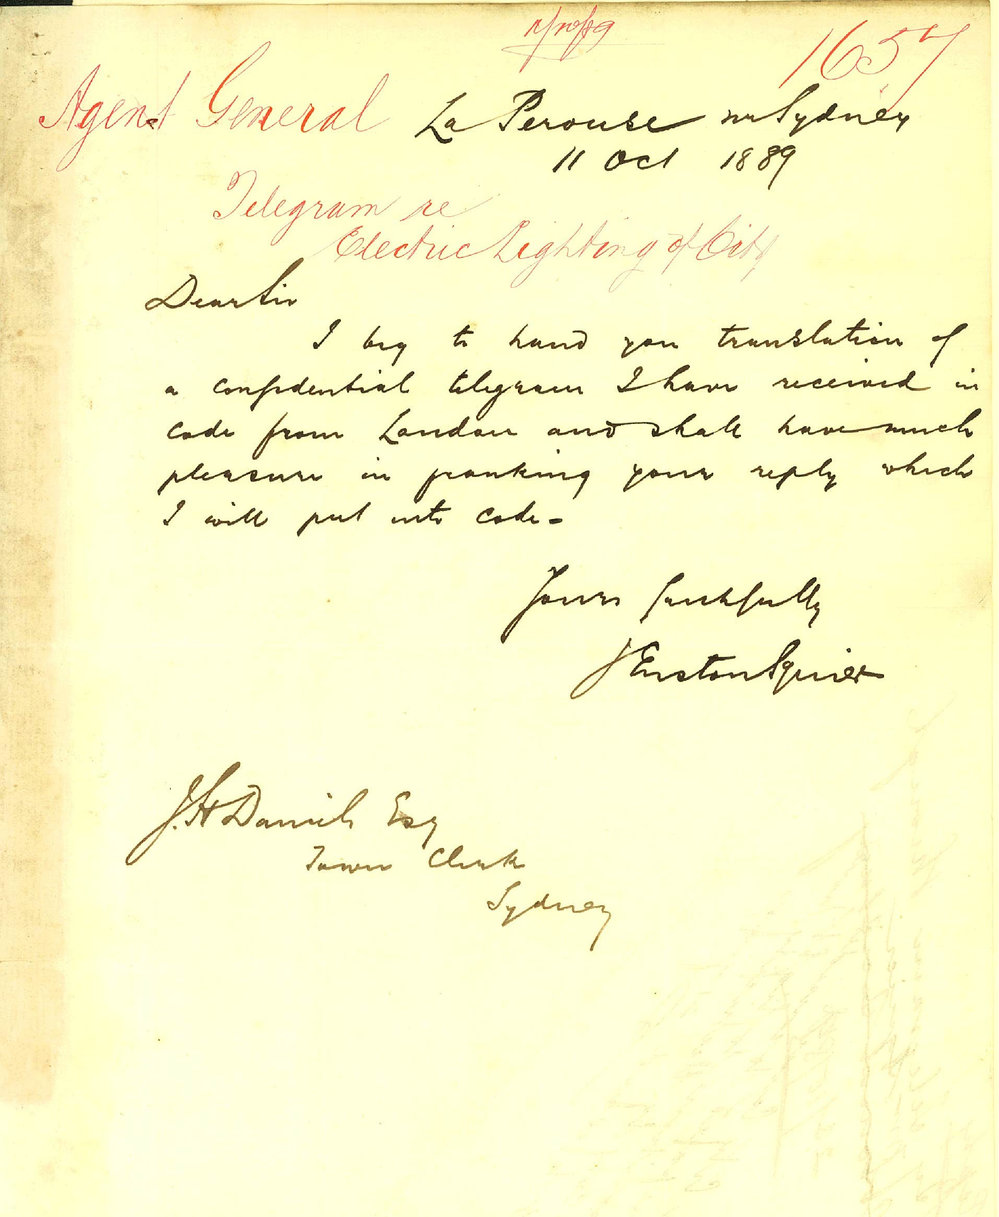 1657
Agent General
La Perouse nr Sydney
11 Oct 1889
Telegram re
Electric Lighting of City
Dear Sir
I beg to hand you translation of
a confidential telegram I have received in
code from London and shall have much
pleasure in franking your reply which
I will put into code.
Yours faithfully
J Enston Squier
J. H Daniels Esq
Town Clerk
Sydney